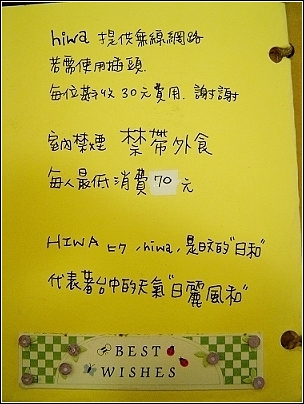 hiwa 提供無線網路
若需使用插頭
每位酌收30元費用.謝謝
室內禁煙 禁帶外食
每人最低消費70元
HIWA ヒワ,hiwa,是日文的"日和"
代表著台中的天氣"日麗風和"
BEST
WISHES